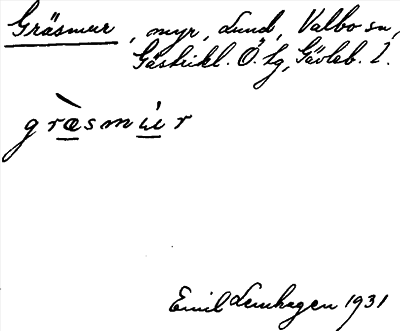 Gräsmur, myr, Lund, Valbo sn,
Gästrikl. Ö. tg, Gävleb. l.
græsmur
Emil Lenhagen 1931